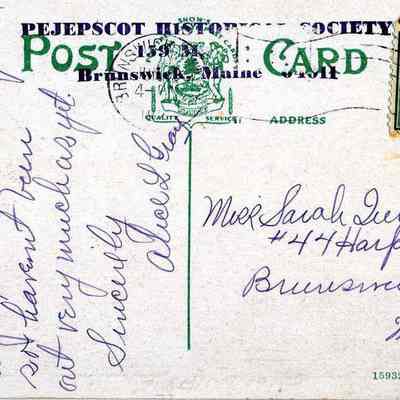 PEJEPSCOT HISTORICAL SOCIETY
159
Brunswick, Maine 04011
POST CARD
BRUNSWICK
QUALITY SERVICE
ADDRESS
so haven't been
out very much as yet.
Sincerely
Alice L Gray
Miss Sarah
#44 Harp
Brunsw
M
1593